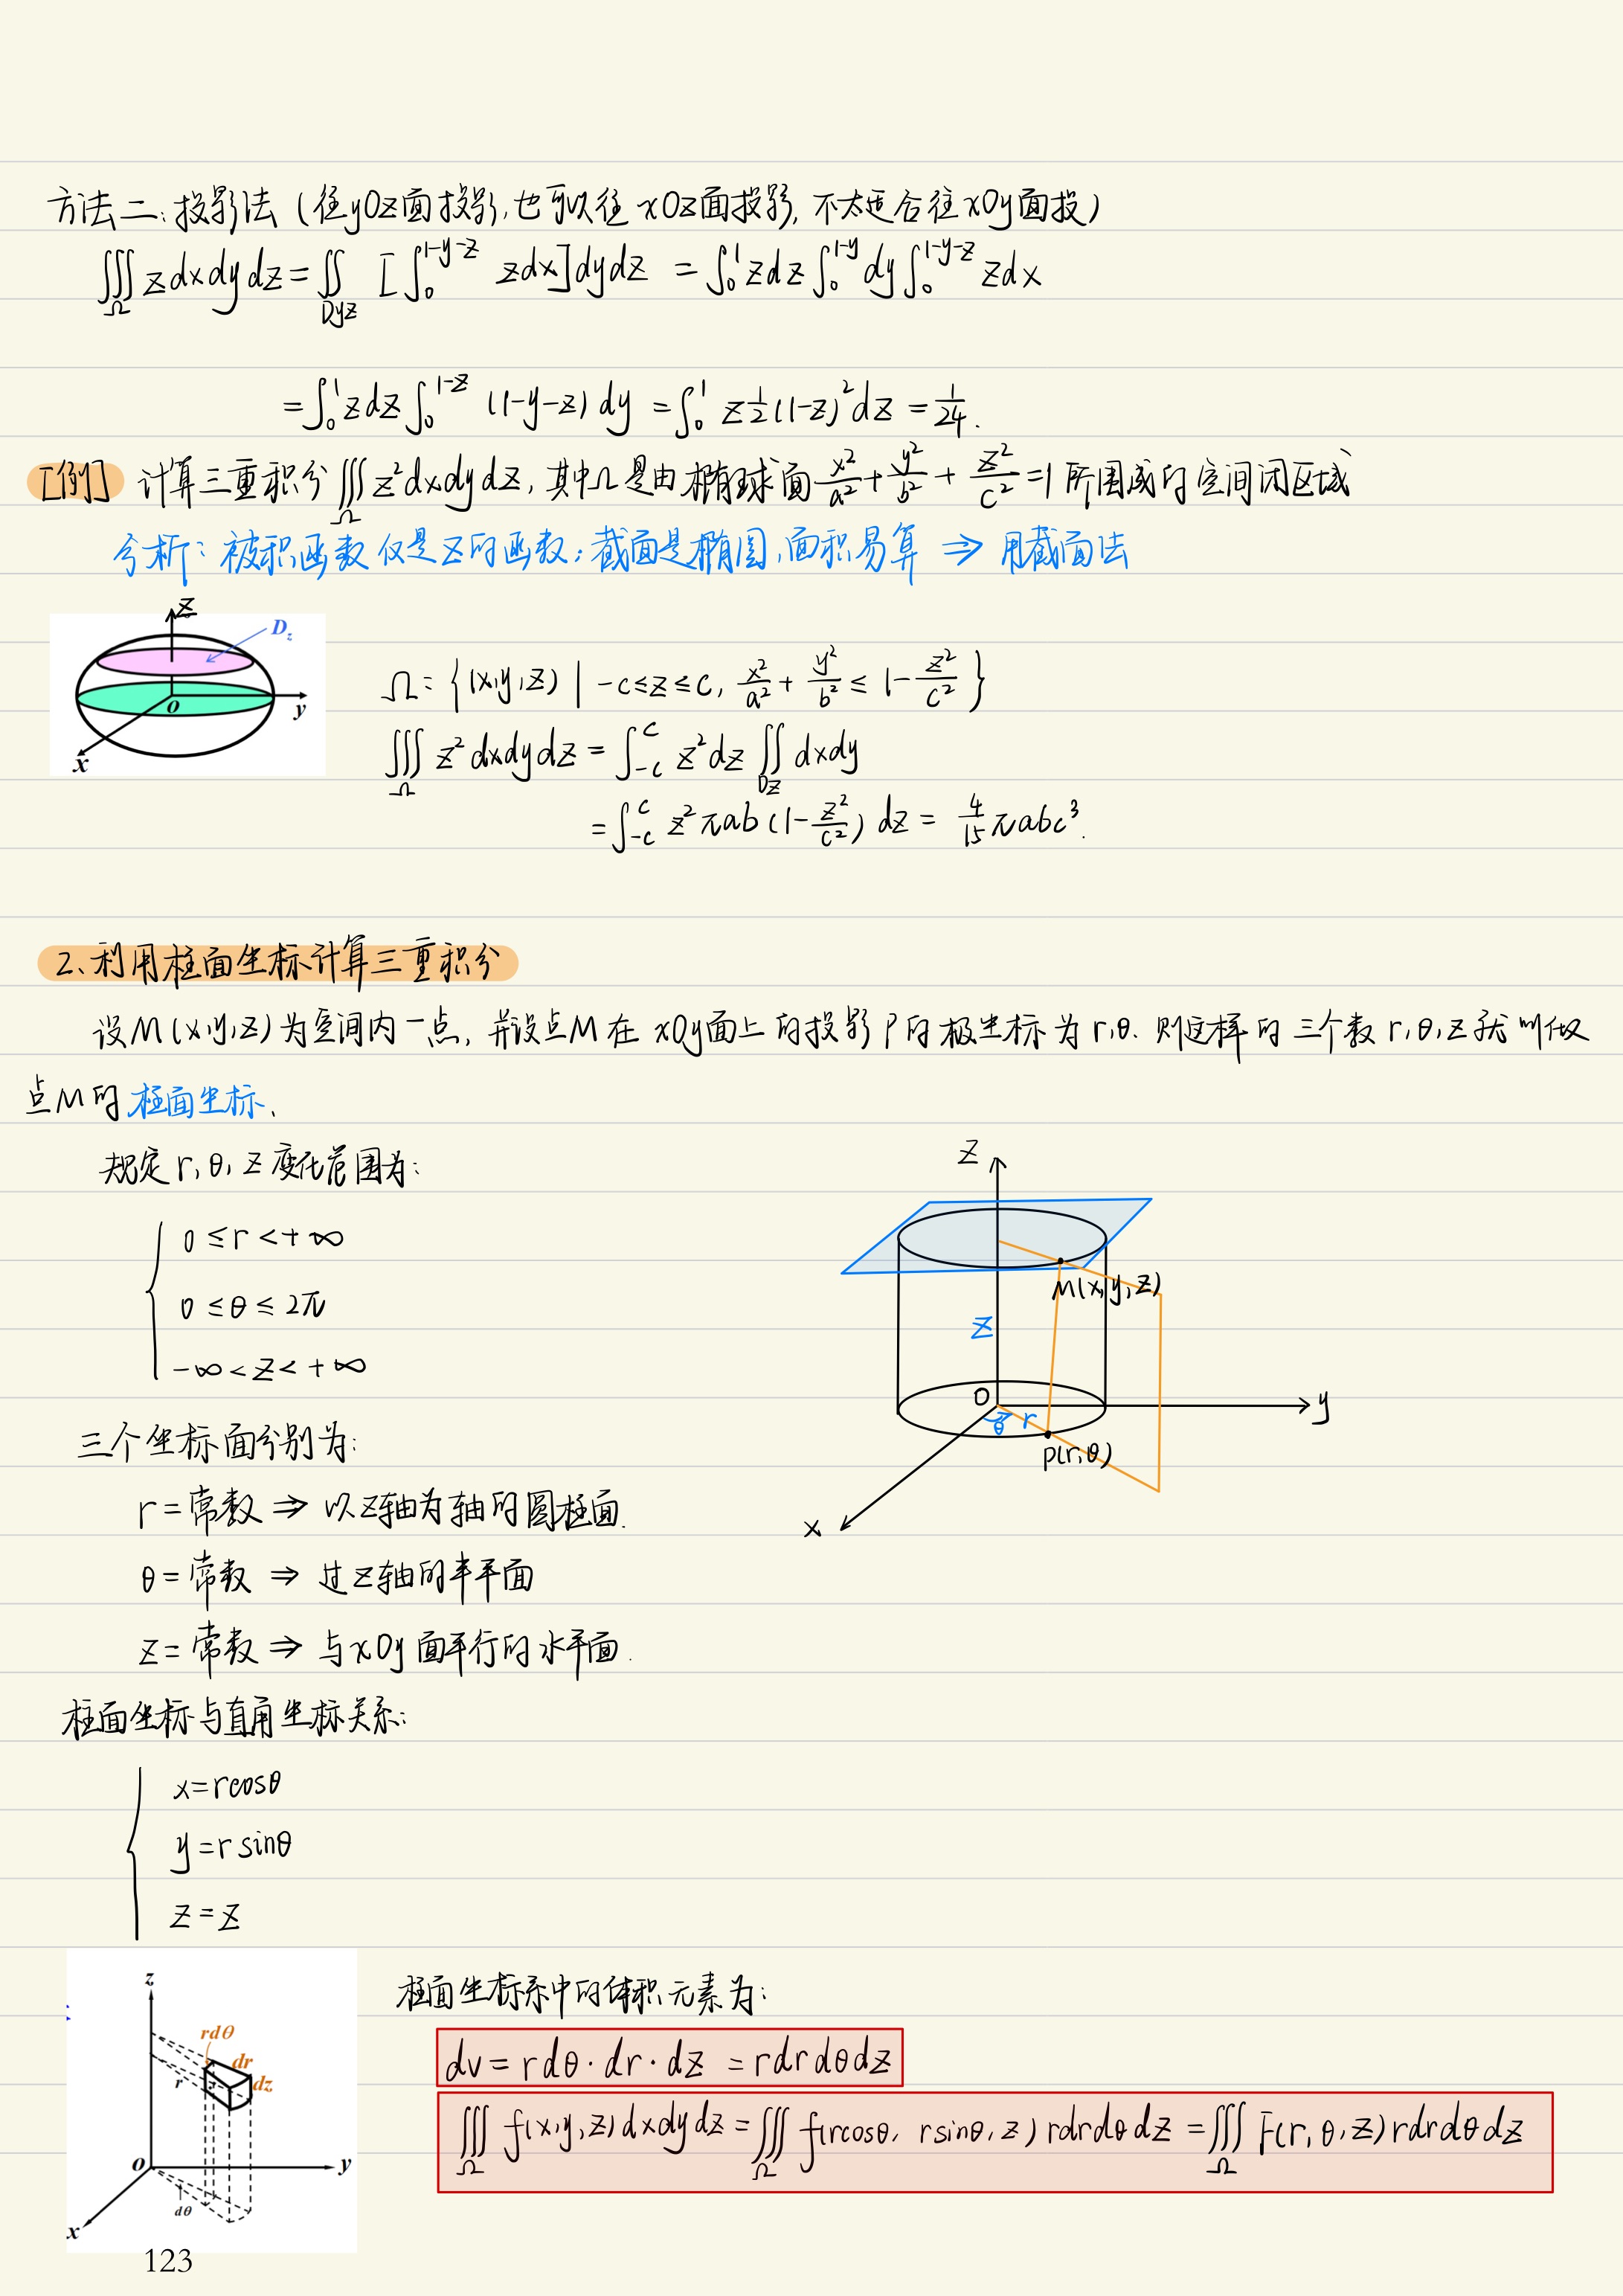 方法二：投影法（往yOz面投影，也可以往xOz面投影，不太适合往xOy面投）
∭_Ω zdxdydz = ∬_{Dyz} [∫_0^{1-y-z} zdx]dydz = ∫_0^1 zdz ∫_0^{1-y} dy ∫_0^{1-y-z} zdx
= ∫_0^1 zdz ∫_0^{1-z} (1-y-z) dy = ∫_0^1 z 1/2 (1-z)^2 dz = 1/24.
[例] 计算三重积分 ∭_Ω z²dxdydz，其中Ω是由椭球面 x²/a² + y²/b² + z²/c² = 1 所围成的空间闭区域
分析：被积函数仅是z的函数；截面是椭圆，面积易算 ⇒ 用截面法
z
D_z
o
y
x
Ω = {(x,y,z) | -c≤z≤c, x²/a² + y²/b² ≤ 1 - z²/c²}
∭_Ω z²dxdydz = ∫_{-c}^{c} z²dz ∬_{Dz} dxdy
= ∫_{-c}^{c} z²πab (1 - z²/c²) dz = 4/15 πabc³.
2、利用柱面坐标计算三重积分
设M(x,y,z)为空间内一点，并设点M在xOy面上的投影P的极坐标为r,θ. 则这样的三个数r,θ,z就叫做
点M的柱面坐标、
规定r,θ,z变化范围为：
0 ≤ r < +∞
0 ≤ θ ≤ 2π
-∞ < z < +∞
z
M(x,y,z)
z
O
y
θ
r
P(r,θ)
x
三个坐标面分别为：
r = 常数 ⇒ 以z轴为轴的圆柱面.
θ = 常数 ⇒ 过z轴的半平面
z = 常数 ⇒ 与xOy面平行的水平面.
柱面坐标与直角坐标关系：
x = rcosθ
y = rsinθ
z = z
z
rdθ
dr
r
dz
o
y
dθ
x
柱面坐标系中的体积元素为：
dv = rdθ·dr·dz = rdrdθdz
∭_Ω f(x,y,z)dxdydz = ∭_Ω f(rcosθ, rsinθ, z) rdrdθdz = ∭_Ω F(r,θ,z)rdrdθdz
123